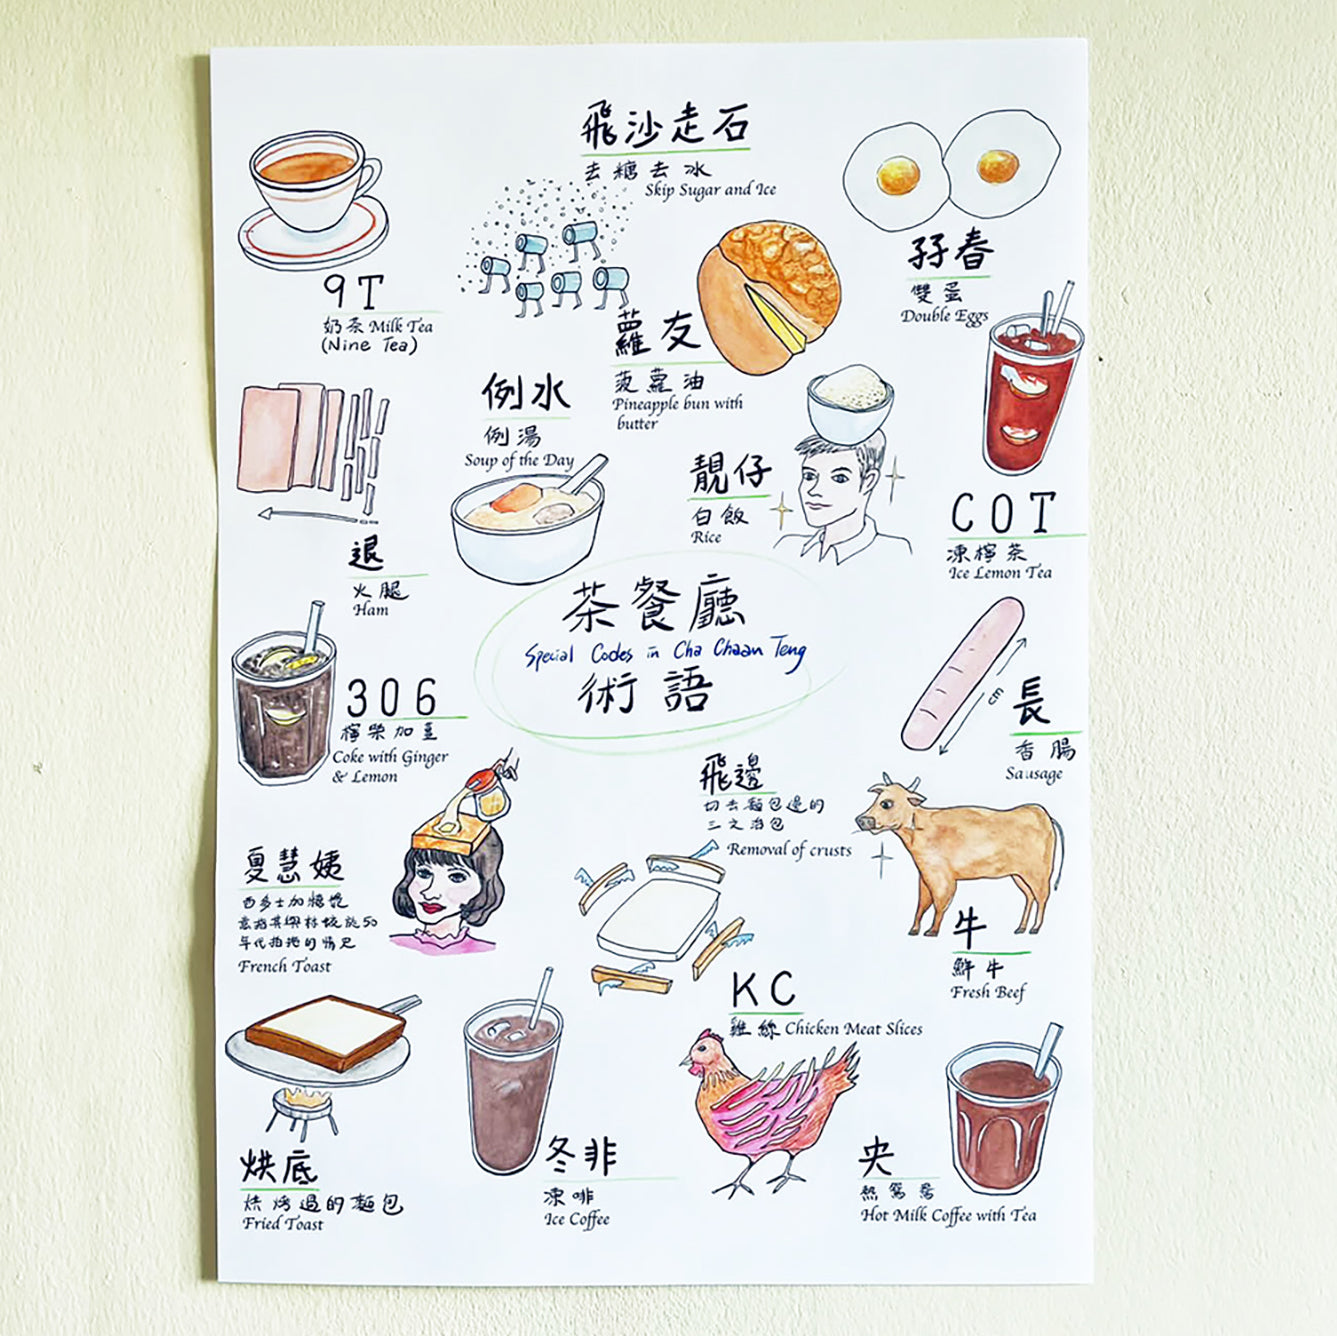 飛沙走石
去糖去水
Skip Sugar and Ice
9T
奶茶 Milk Tea
(Nine Tea)
孖春
雙蛋
Double Eggs
蘿友
菠蘿油
Pineapple bun with
butter
例水
例湯
Soup of the Day
靚仔
白飯
Rice
COT
凍檸茶
Ice Lemon Tea
退
火腿
Ham
茶餐廳
Special Codes in Cha Chaan Teng
術語
306
檸樂加薑
Coke with Ginger
& Lemon
長
香腸
Sausage
飛邊
切去麵包邊的
三文治包
Removal of crusts
夏慧姨
西多士加糖漿
年代拍拖的情史
French Toast
牛
鮮牛
Fresh Beef
KC
雞絲 Chicken Meat Slices
烘底
烘烤過的麵包
Fried Toast
冬非
凍啡
Ice Coffee
央
熱鴛鴦
Hot Milk Coffee with Tea